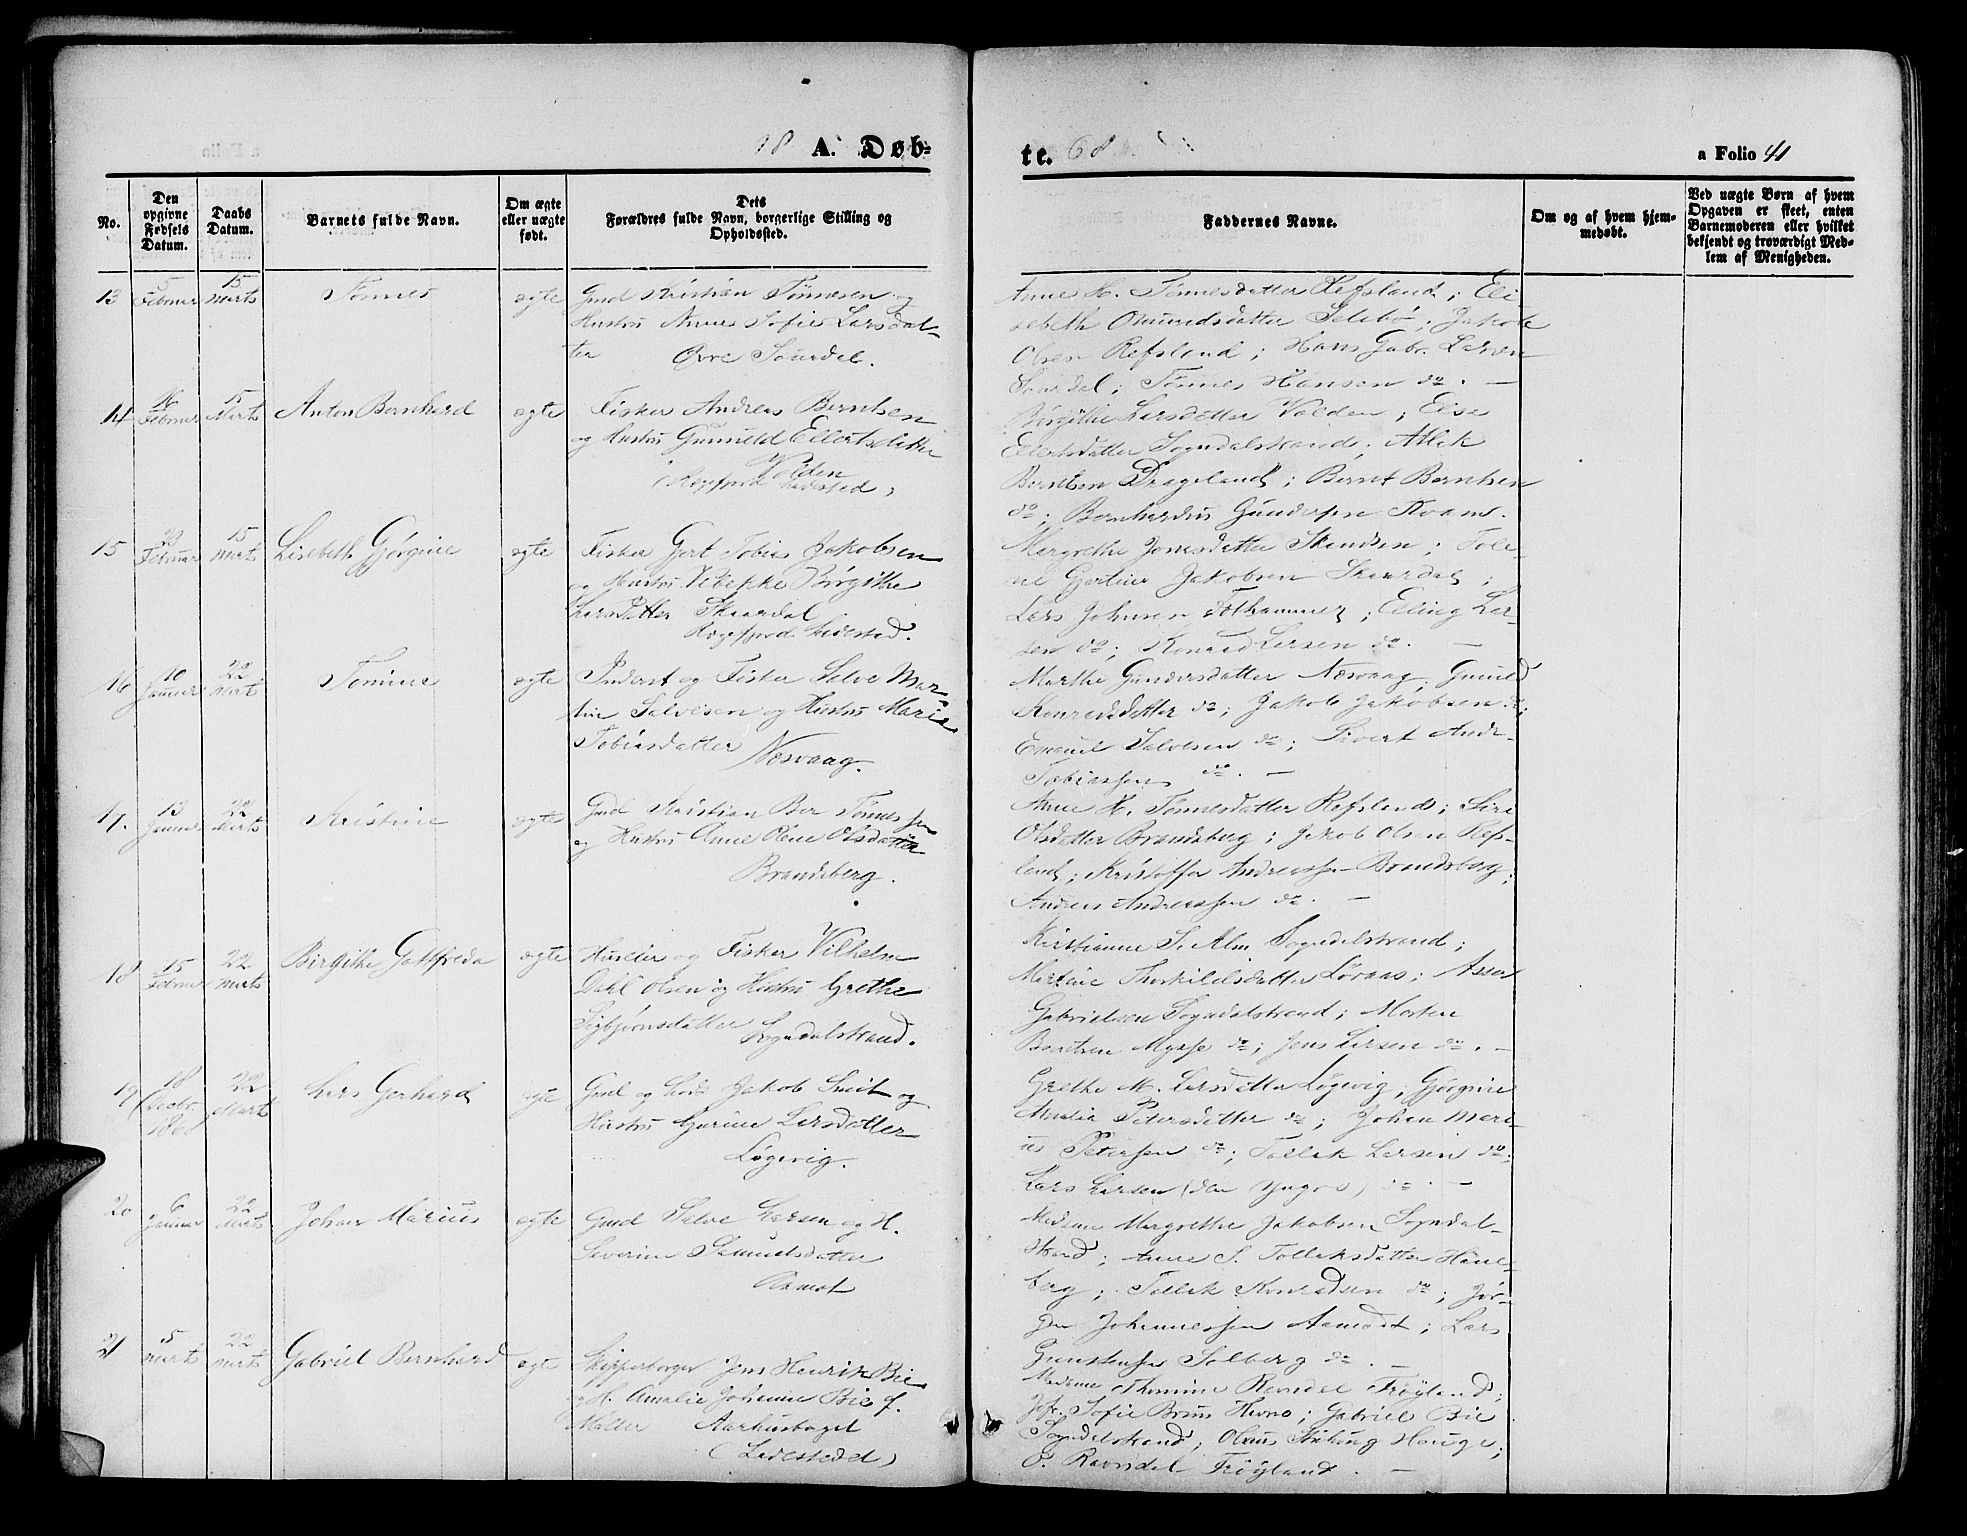 18 A. Døb-
te. 68.
a Folio 41
No.
Den opgivne Fødsels Datum.
Daabs Datum.
Barnets fulde Navn.
Om ægte eller uægte født.
Dets Forældres fulde Navn, borgerlige Stilling og Opholdssted.
Faddernes Navne.
Om og af hvem hjemmedøbt.
Ved uægte Børn af hvem Opgaven er skeet, enten Barnemoderen eller hvilket bekjendt og troværdigt Medlem af Menigheden.
13
5 Februar
15 Marts
Tønnes
ægte
Gmd Kristian Tønnesen og
Hustru Anne Sofie Larsdat-
ter
Anne H. Tønnesdatter Refsland; Eli-
sebeth Omundsdatter Selebø; Jakob
Olsen Refsland; Hans Gabr. Larsen
Tønnes Hansen do. —
14
16 Februar
15 Marts
Anton Bernhard
ægte
Fisker Andreas Berntsen
og Hustru Gunnild Eilertsdatter
Valden
(Rægefjord Ladested)
Birgithe Larsdatter Valden; Else
Eilertsdatter Sogndalstrand; Atlak
Berntsen Drageland; Bernt Berntsen
do; Bernhardus Gundersen Kvam.
15
20 Februar
15 Marts
Lisebeth Gjørgine
ægte
Fisker Gert Tobias Jakobsen
og Hustru Vibekke Birgithe
Larsdatter Skaardal
Rægefjord Ladested.
Margrethe Jonasdatter
Jakobsen Skaardal;
Lars Johnsen; Elling Lar-
sen do; Konrad Larsen do. —
16
10 Januar
22 Marts
Tomine
ægte
Inderst og Fisker Salve Mar-
tin Salvesen og Hustru Marie
Tobiasdatter Nesvaag.
Marthe Gundersdatter Nesvaag, Gunild
Konradsdatter do; Jakob Jakobsen do;
Emanuel Salvesen do; Sivert Andr.
Tobiassen do. —
17.
13 Januar
22 Marts
Kristine
ægte
Gmd Kristian Ber Tønnessen
og Hustru Anne Olene Olsdatter
Brandsberg.
Anne H. Tønnesdatter Refsland; Siri
Olsdatter Brandsberg; Jakob Olsen Refs-
land; Kristoffer Andreassen Brandsberg;
Andreas Andreassen do. —
18
15 Februar
22 Marts
Birgithe Gottfreda
ægte
Husleier og Fisker Vilhelm
Dahl Olsen og Hustru Grethe
Sigbjørnsdatter Sogndalstrand.
Kirstianne S. Alm Sogndalstrand;
Martine Thorkildsdatter Løvaas; Asser
Gabrielsen Sogndalstrand; Morten
Berntsen Mysse do; Jens Larsen do. —
19
18 Decbr. 1868
22 Marts
Lars Gerhard
ægte
Gmd og Lods Jakob Smit og
Hustru Gurine Larsdatter
Løgevig.
Grethe M. Larsdatter Løgevig; Gjørgine
Amalia Petersdatter do; Johan Mari-
us Petersen do; Tollak Larsen do;
Lars Larsen (den yngre) do. —
20
6 Januar
22 Marts
Johan Marius
ægte
Gmd Salve Larsen og H.
Severine Samuelsdatter
Aamot
Madame Margrethe Jakobsen Sogndal-
strand; Anne S. Tollaksdatter Hane-
berg; Tollak Konradsen do; Jør-
gen Johannessen Aamodt; Lars
Gunstensen Solberg do. —
21
5 Marts
22 Marts
Gabriel Bernhard
ægte
Skipperborger Jens Henrik Bie
og H. Amalie Johanne Bie f.
Møller Aarhusbaget
(Ladestedet)
Madame Thomine Ravndal Frøyland;
Jfr. Sofie Bruus; Gabriel Bie
Sogndalstrand; Olaus Hauge;
P. Ravndal Frøyland. —